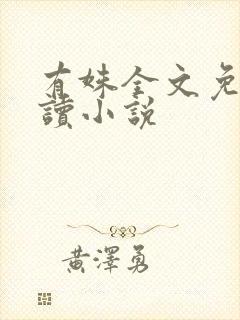 有妹全文免
讀小說
黃澤勇